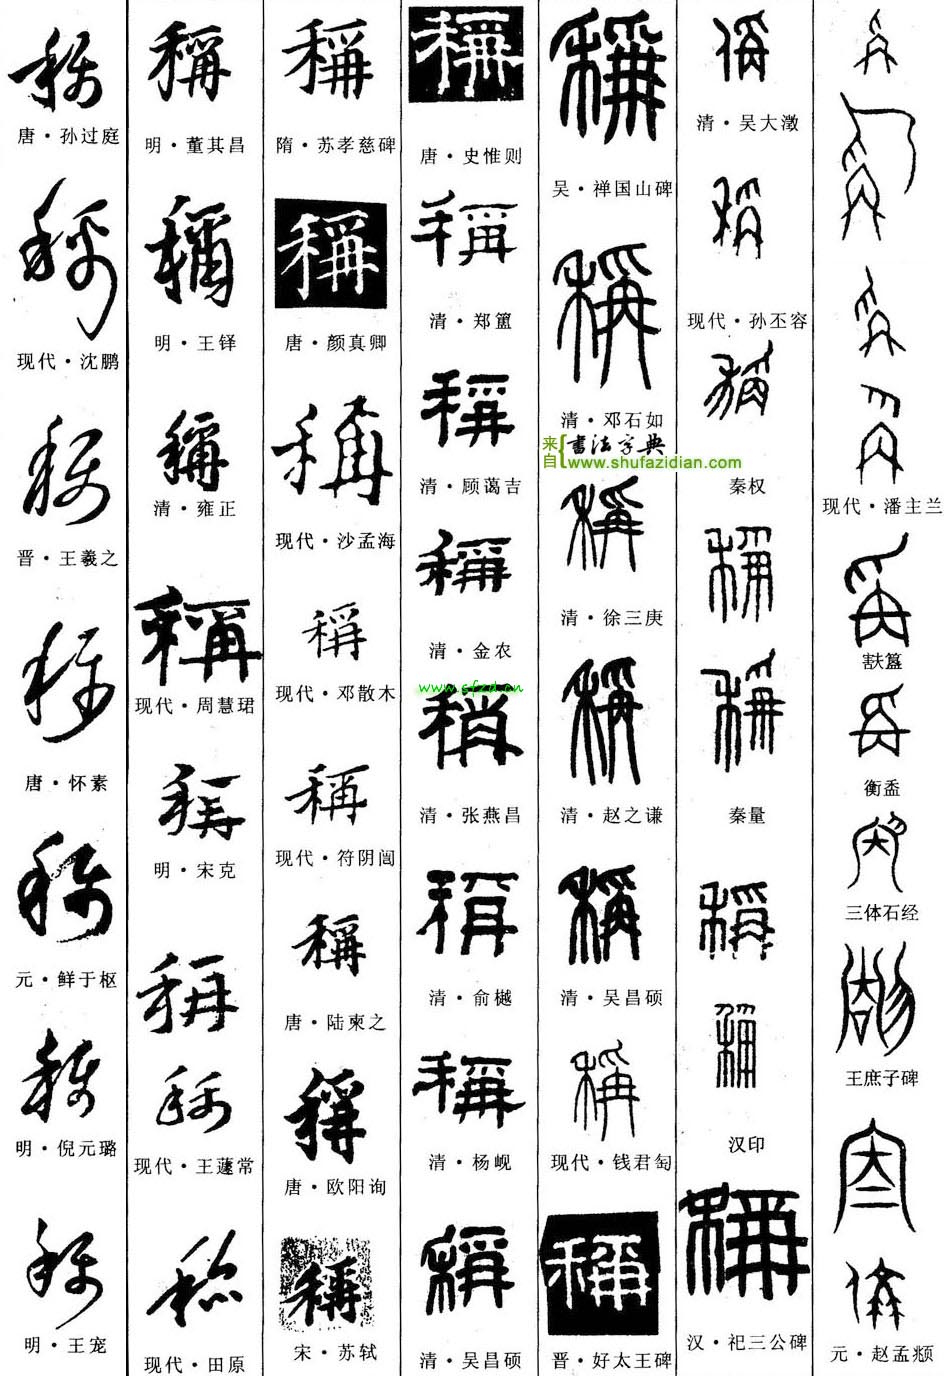 稱
唐·孙过庭
稱
现代·沈鹏
稱
晋·王羲之
稱
唐·怀素
稱
元·鲜于枢
稱
明·倪元璐
稱
明·王宠
稱
明·董其昌
稱
明·王铎
稱
清·雍正
稱
现代·周慧珺
稱
明·宋克
稱
稱
现代·王蘧常
称
现代·田原
稱
隋·苏孝慈碑
稱
唐·颜真卿
稱
现代·沙孟海
稱
现代·邓散木
稱
现代·符阴闿
稱
唐·陆柬之
稱
唐·欧阳询
稱
宋·苏轼
稱
唐·史惟则
稱
清·郑簠
稱
清·顾蔼吉
稱
清·金农
www.sfzd.cn
稱
清·张燕昌
稱
清·俞樾
稱
清·杨岘
稱
清·吴昌硕
稱
吴·禅国山碑
稱
清·邓石如
来自{書法字典
www.shufazidian.com
稱
清·徐三庚
稱
清·赵之谦
稱
清·吴昌硕
稱
现代·钱君匋
稱
晋·好太王碑
清·吴大澂
现代·孙丕容
稱
秦权
稱
稱
秦量
稱
稱
汉印
稱
汉·祀三公碑
现代·潘主兰
𫵷簋
衡盉
三体石经
王庶子碑
元·赵孟頫